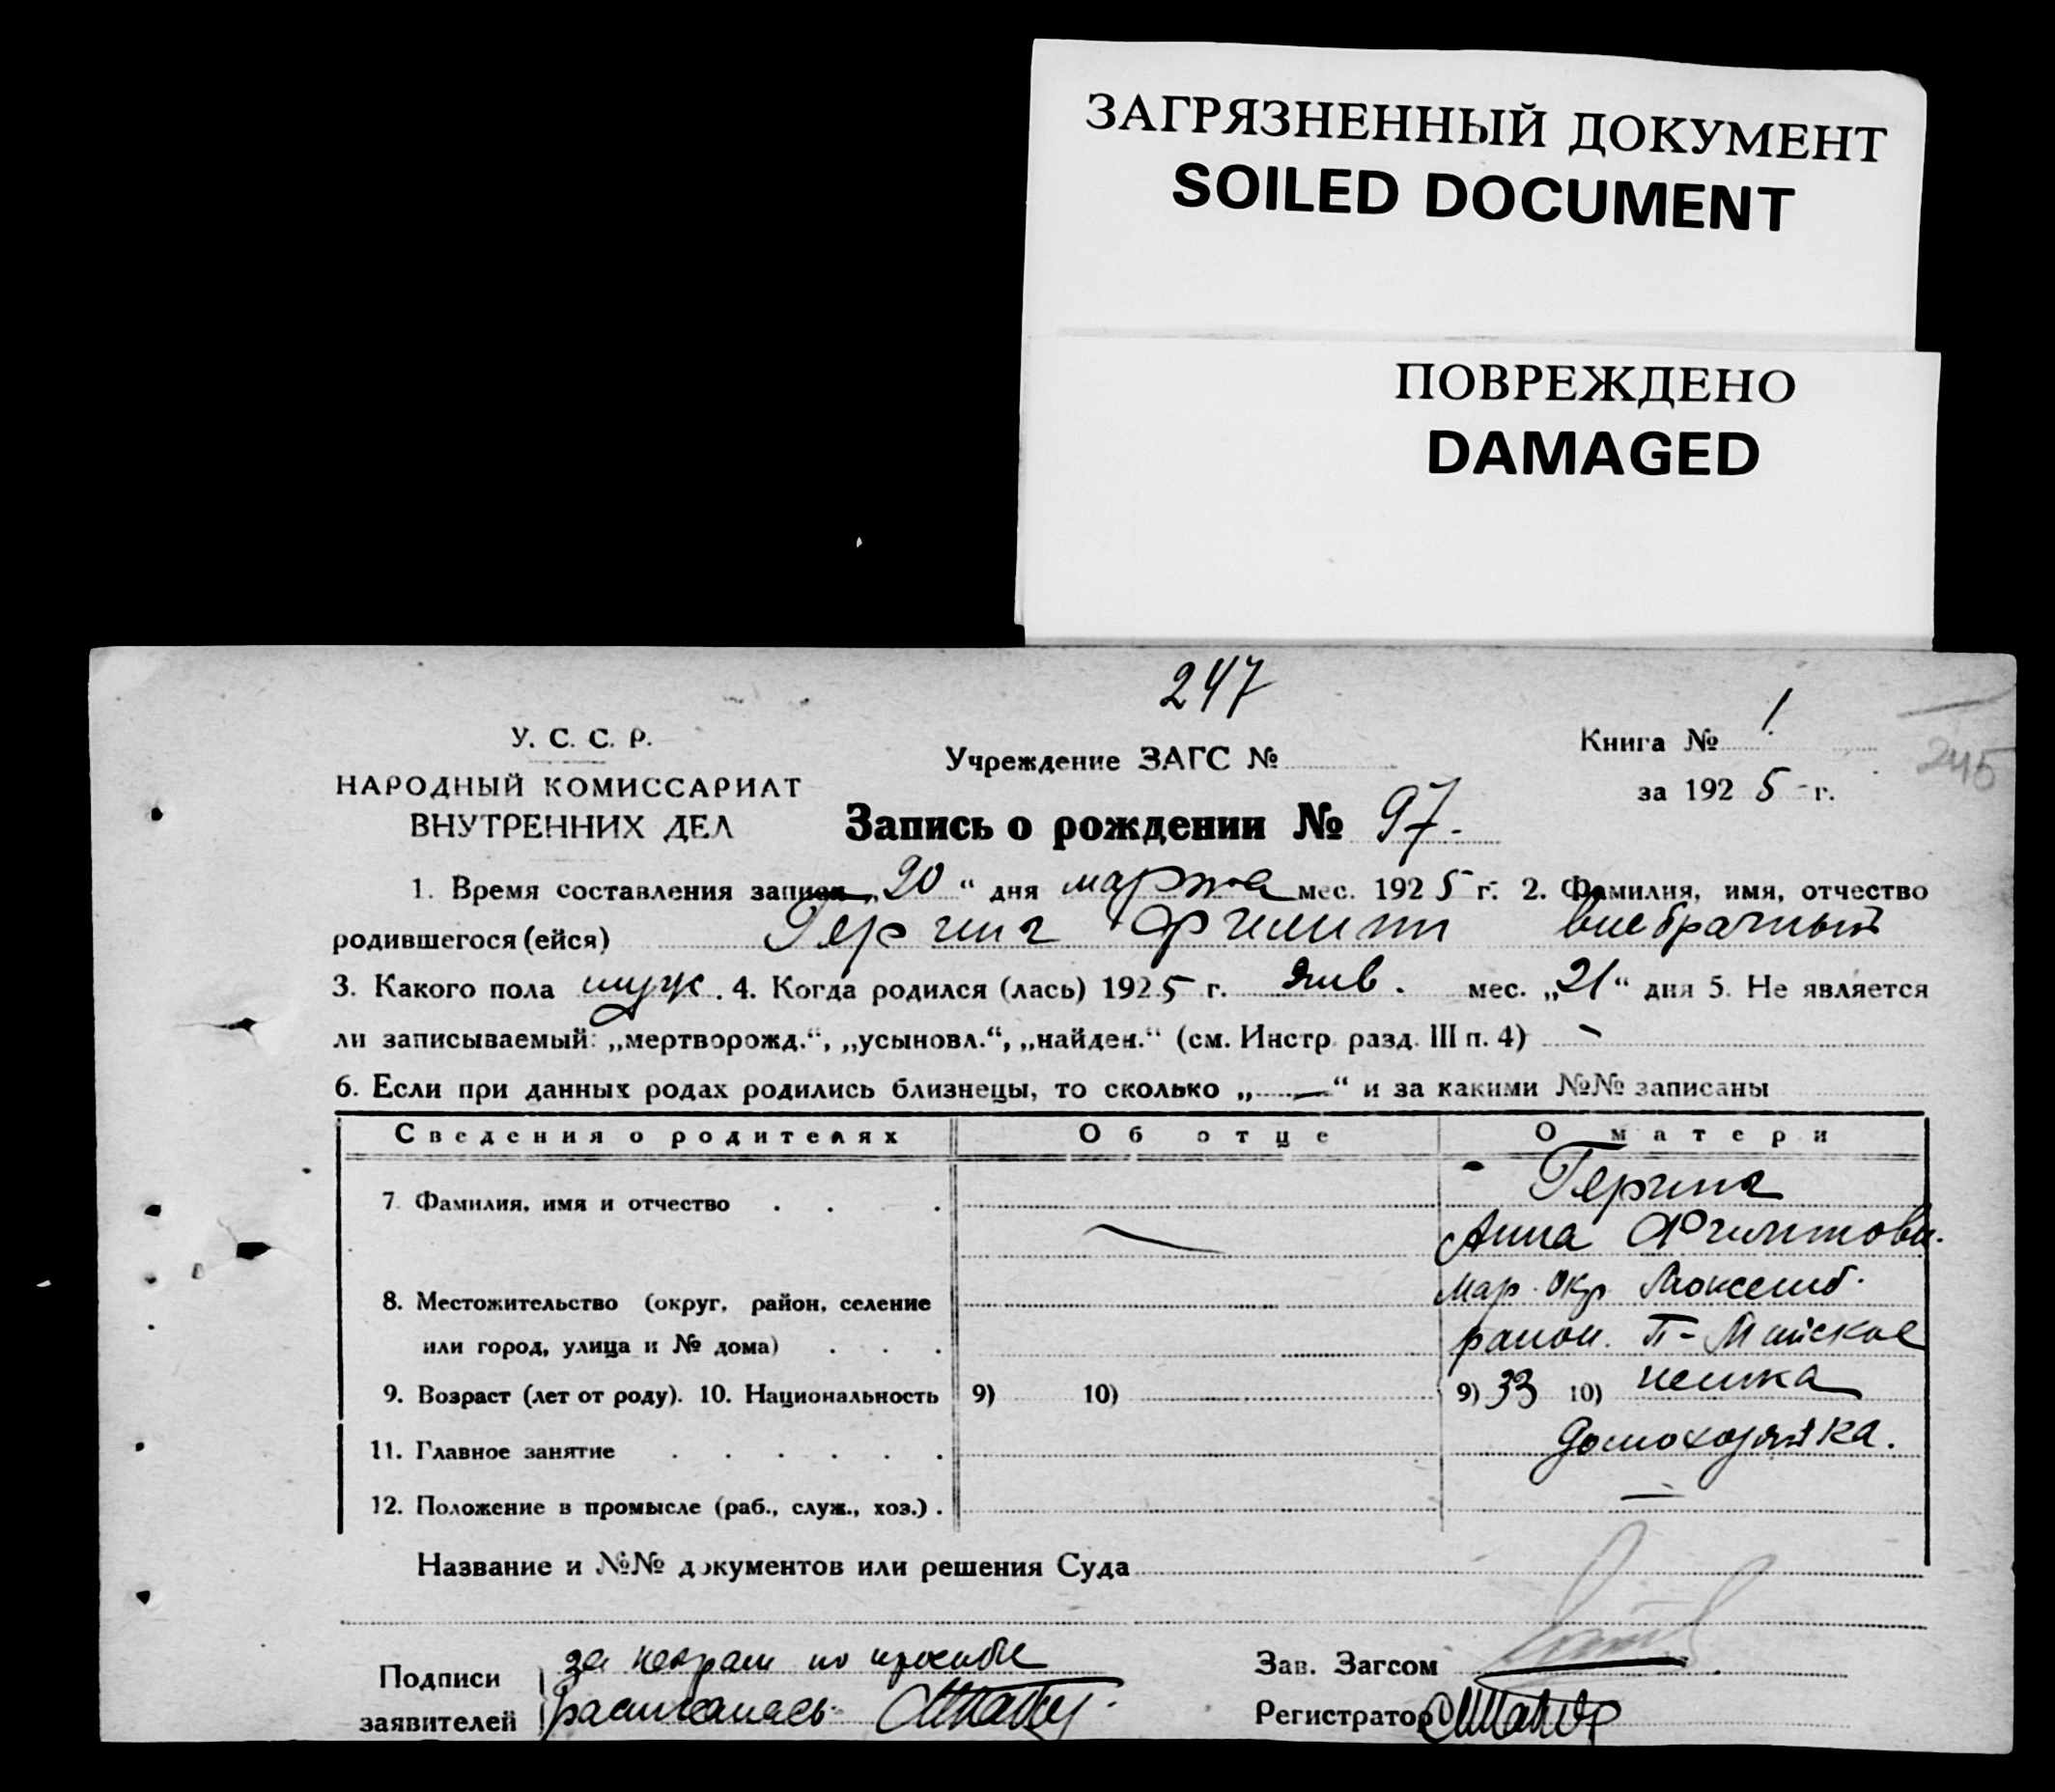 ЗАГРЯЗНЕННЫЙ ДОКУМЕНТ
SOILED DOCUMENT
ПОВРЕЖДЕНО
DAMAGED
247
У. С. С. Р.
НАРОДНЫЙ КОМИССАРИАТ
ВНУТРЕННИХ ДЕЛ
Учреждение ЗАГС №
Книга № 1
245
за 1925 г.
Запись о рождении № 97.
1. Время составления записи „20“ дня марта мес. 1925 г. 2. Фамилия, имя, отчество
родившегося (ейся) Геринг Филипп внебрачный
3. Какого пола муж. 4. Когда родился (лась) 1925 г. янв. мес. „21“ дня 5. Не является
ли записываемый: „мертворожд.“, „усыновл.“, „найден.“ (см. Инстр. разд. III п. 4) -
6. Если при данных родах родились близнецы, то сколько „—“ и за какими №№ записаны
Сведения о родителях Об отце О матери
7. Фамилия, имя и отчество . . . - Геринг
Анна Филиппови.
8. Местожительство (округ, район, селение Мар. Окр.
или город, улица и № дома) . . . район. П-Майское
9. Возраст (лет от роду). 10. Национальность 9) 10) 9) 33 10) немка
11. Главное занятие . . . . . . домохозяйка.
12. Положение в промысле (раб., служ., хоз.) . —
Название и №№ документов или решения Суда
Подписи за неграм по просьбе
заявителей расписалась
Зав. Загсом
Регистратор